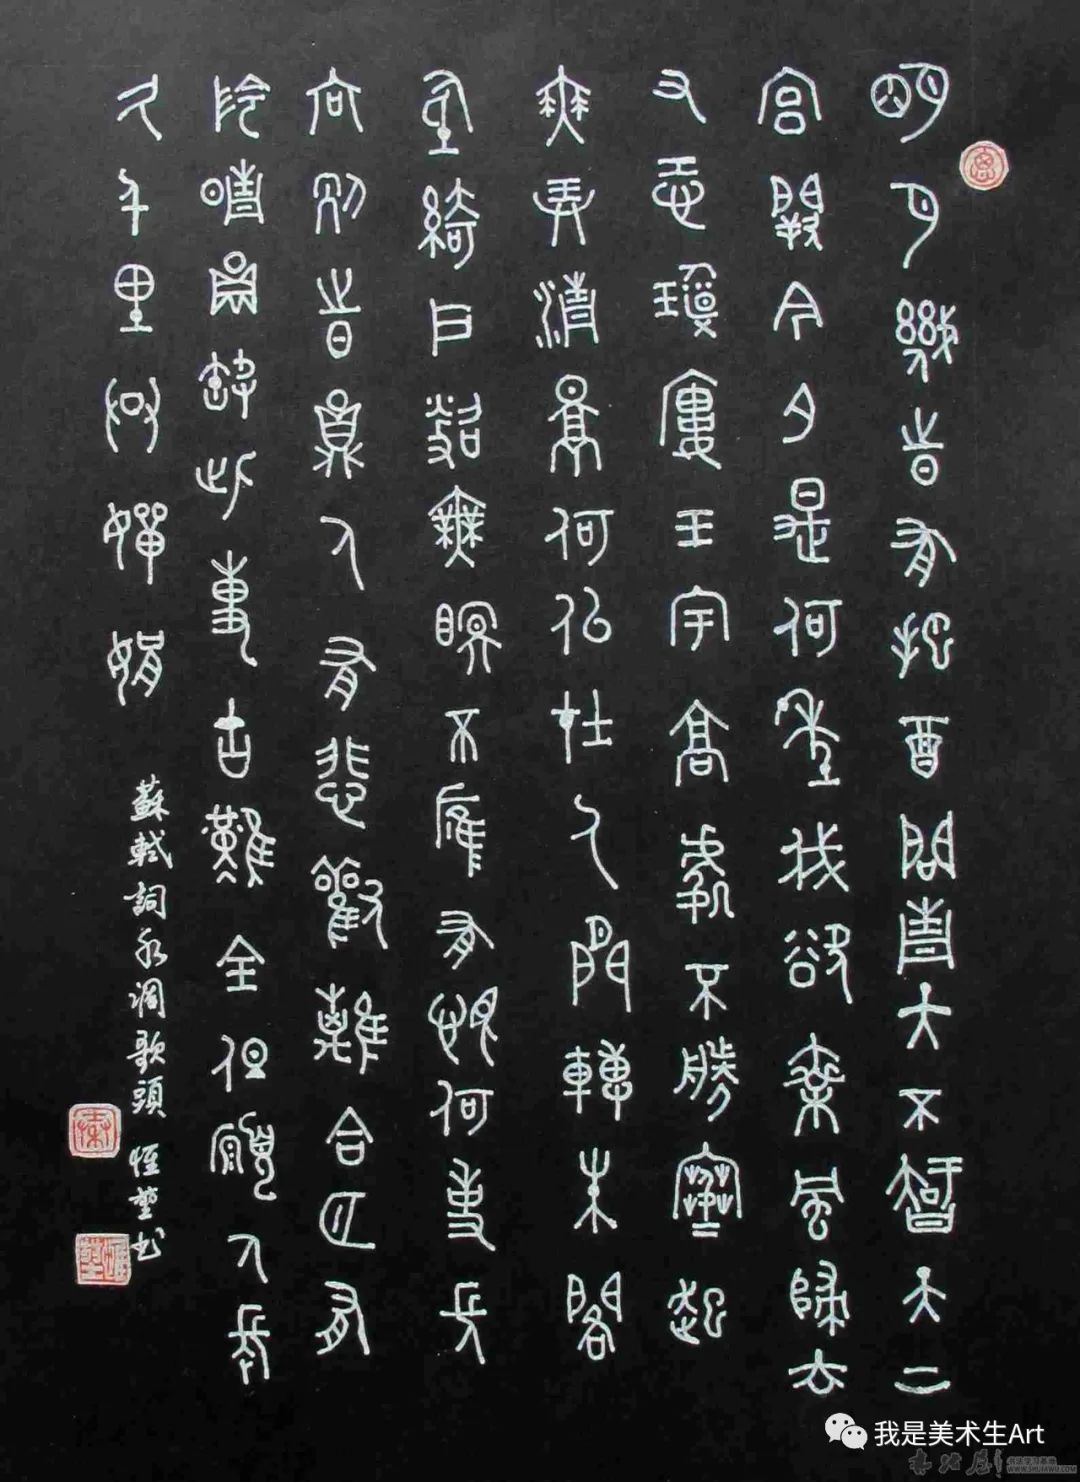 明月幾時有把酒問青天不智天上
宮闕今夕是何年我欲乘風歸去
又恐瓊樓玉宇高處不勝寒起
舞弄清影何似在人間轉朱閣
低綺戶照無眠不應有恨何事長
向別時圓人有悲歡離合月有
陰晴圓缺此事古難全但願人長
久千里共嬋娟
蘇軾詞水調歌頭 恆堃书
我是美术生Art